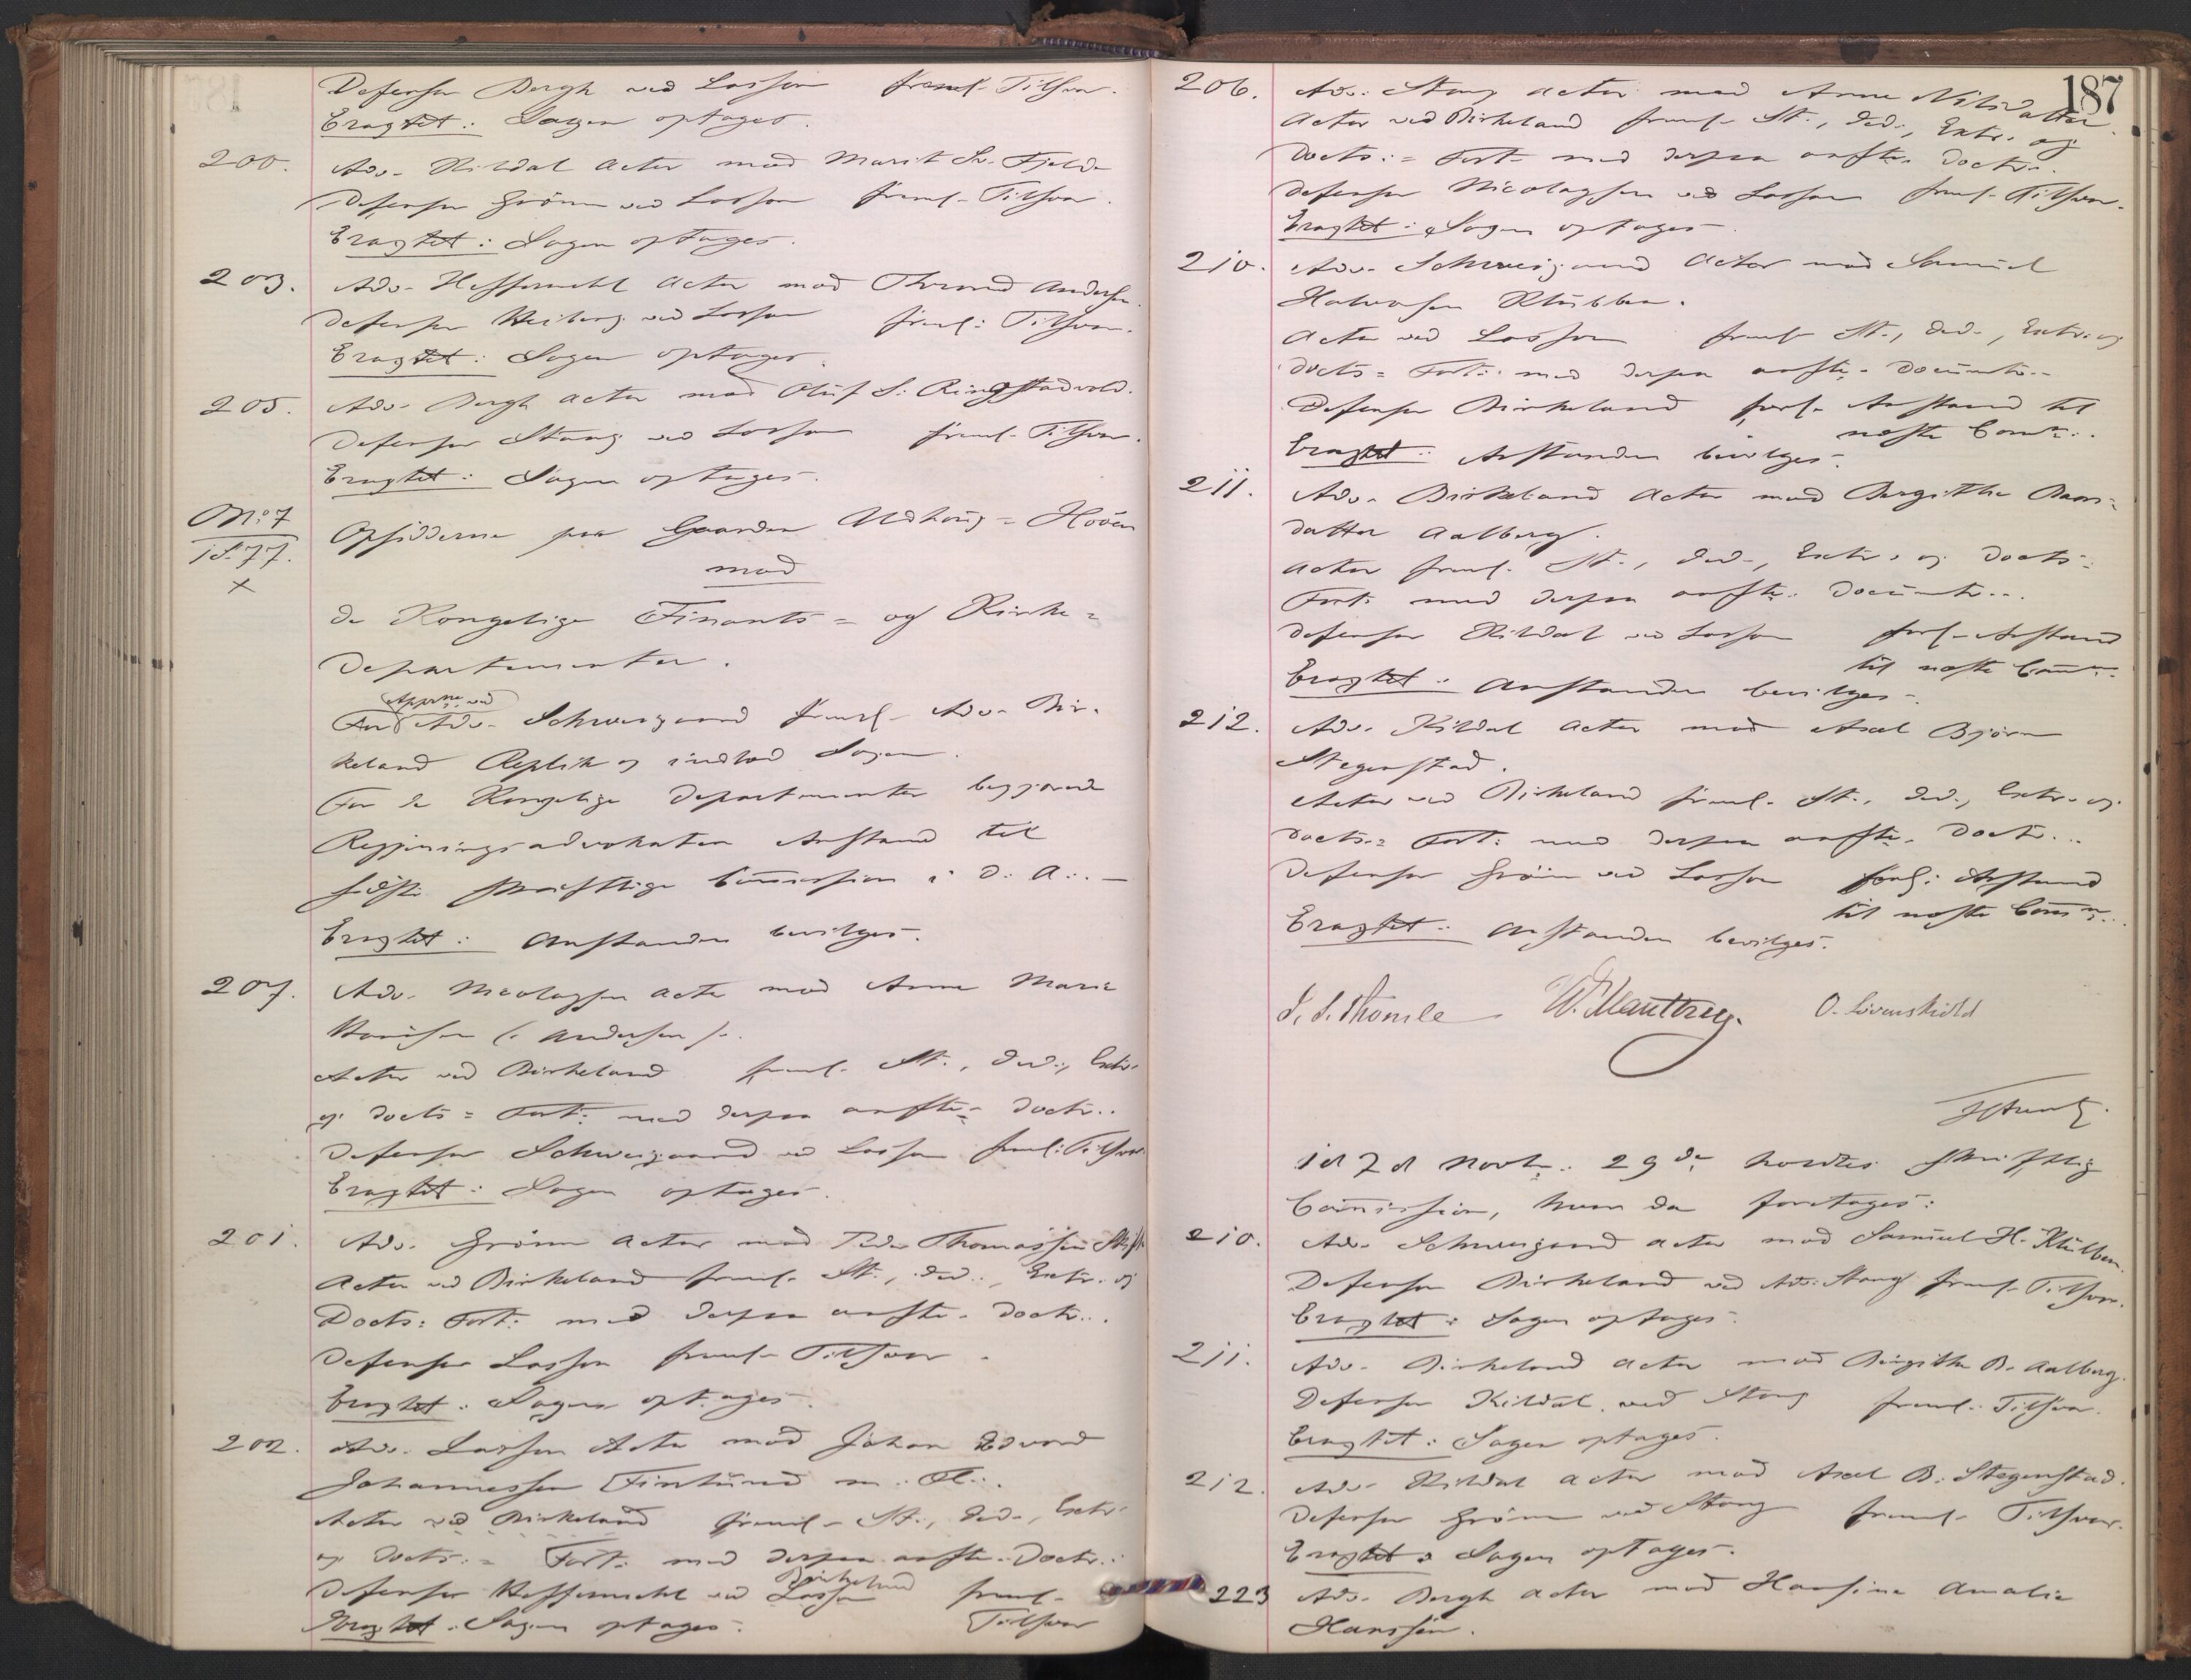 Defensor Bergh ved Lasson freml. Tilsvar.
Eragtet: Sagen optages.
200. Adv. Kildal Actor mod Marit Fjelde
Defensor Grönn ved Lasson freml. Tilsvar.
Eragtet: Sagen optages.
203. Adv. Heffermehl Actor mod Thrond Andersen.
Defensor Heiberg ved Lasson freml: Tilsvar.
Eragtet: Sagen optages.
205. Adv. Bergh Actor mod Oluf S: Ringstadvold.
Defensor Stang ved Lasson freml. Tilsvar.
Eragtet: Sagen optages.
No: 7 Opsidderne paa Gaarden
1877. mod
x
de Kongelige Finants= og Kirke=
Departementer.
Appne ved
For Adv. Schweigaard freml. Adv. Bir-
keland Replik og indlod Sagen.
For de Kongelige Departementer begjærede
Regjeringsadvokaten Anstand til
sidste skriftlige Commission i D: A:. —
Eragtet: Anstanden bevilges.
207. Adv. Nicolaysen Actor mod Anne Marie
(: Andersen :).
Actor ved Birkeland freml. St., Ded:, Extr.
og Docts= Fort: med derpaa anfte. Doctr..
Defensor Schweigaard ved Lasson freml: Tilsvar.
Eragtet: Sagen optages.
201. Adv. Grönn Actor mod Peder Thomassen
Actor ved Birkeland freml. St., Ded:, Extr. og
Docts: Fort: med derpaa anfte. Doctr...
Defensor Lasson freml. Tilsvar.
Eragtet: Sagen optages.
202. Adv. Lasson Actor mod Johan Edvard
Johannessen Finlund m: Fl:.
Actor ved Birkeland freml. St., Ded., Extr.
og Docts.= Fort: med derpaa anfte. Doctr.:
Birkeland
Defensor Heffermehl ved Lasson freml.
Eragtet: Sagen optages. Tilsvar
187
206. Adv. Stang Actor mod Anne Nilsdatter.
Actor ved Birkeland freml. St., Ded., Extr. og
Docts:= Fort. med derpaa anfte. Doctr.
Defensor Nicolaysen ved Lasson freml. Tilsvar.
Eragtet: Sagen optages.
210. Adv. Schweigaard Actor mod Samuel
Halvorsen Klubben.
Actor ved Lasson freml. St., Ded., Extr. og
Docts= Fort: med derpaa anfte. Documtr.
Defensor Birkeland forl. Anstand til
næste Comn:.
Eragtet: Anstanden bevilges.
211. Adv. Birkeland Actor mod Bergitha
datter Aalberg.
Actor freml. St., Ded., Extr. og Docts=
Fort: med derpaa anfte. Documtr...
Defensor Kildal ved Lasson forl. Anstand
til næste Comn:.
Eragtet: Anstanden bevilges.
212. Adv. Kildal Actor mod Axel Björn
Stegenstad.
Actor ved Birkeland freml. St., Ded., Extr. og
Docts.= Fort: med derpaa anfte. Doctr...
Defensor Grönn ved Lasson forl: Anstand
til næste Comn:.
Eragtet: Anstanden bevilges.
O. Lövenskiold
1878 Novbr: 29de holdtes skriftlig
Commission, hvor da foretoges:
210. Adv. Schweigaard Actor mod Samuel H. Klubben.
Defensor Birkeland ved Adv. Stang freml. Tilsvar.
Eragtet: Sagen optages.
211. Adv. Birkeland Actor mod Birgitha B. Aalberg.
Defensor Kildal ved Stang freml. Tilsvar.
Eragtet: Sagen optages.
212. Adv. Kildal Actor mod Axel B. Stegenstad.
Defensor Grönn ved Stang freml. Tilsvar.
Eragtet: Sagen optages.
223 Adv. Bergh Actor mod Hansine Amalie
Hanssen.